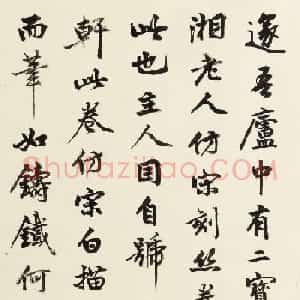 邃吾廬中有二寶
湘老人仿宋刻丝
此也主人因自號
軒此卷仿宋白描
而筆如鑄鐵何
Shufaziliao.COM